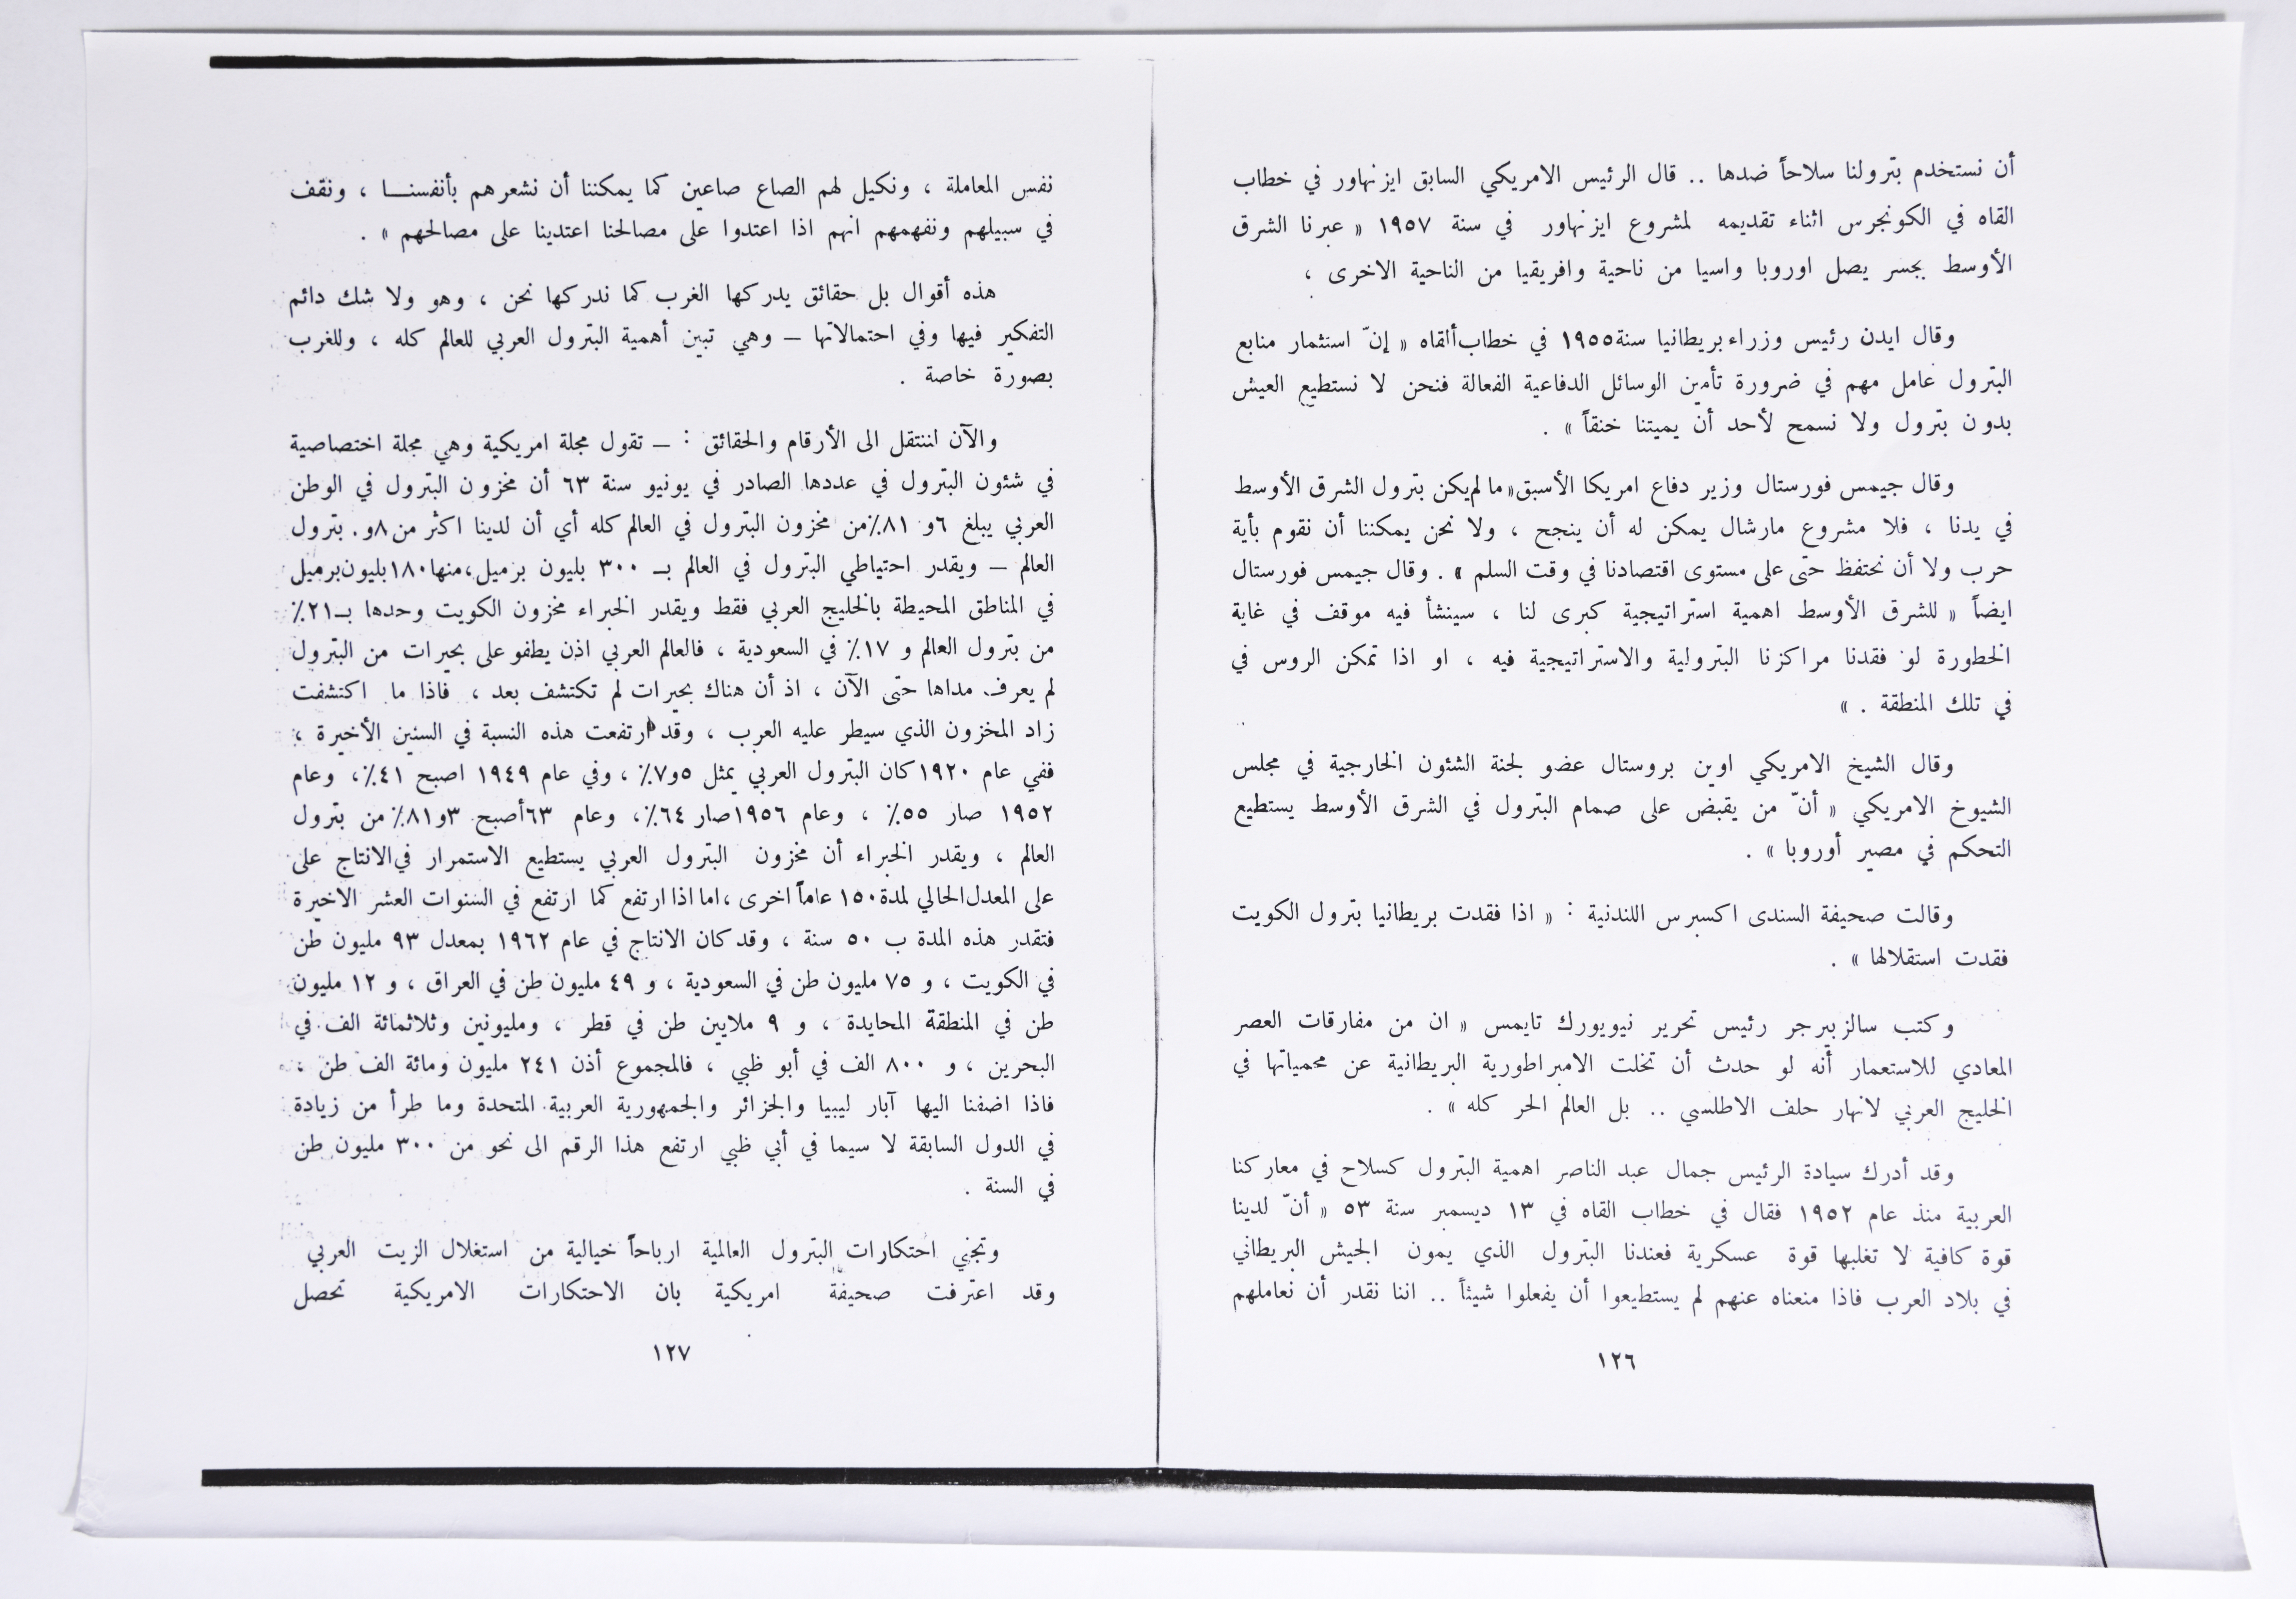 أن نستخدم بترولنا سلاحاً ضدها .. قال الرئيس الامريكي السابق ايزنهاور في خطاب
القاه في الكونجرس اثناء تقديمه لمشروع ايزنهاور في سنة ١٩٥٧ « عبرنا الشرق
الأوسط بجسر يصل اوروبا واسيا من ناحية وافريقيا من الناحية الاخرى ،
وقال ايدن رئيس وزراء بريطانيا سنة ١٩٥٥ في خطاب ألقاه « إنّ استثمار منابع
البترول عامل مهم في ضرورة تأمين الوسائل الدفاعية الفعالة فنحن لا نستطيع العيش
بدون بترول ولا نسمح لأحد أنّ يميتنا خنقاً » .
وقال جيمس فورستال وزير دفاع امريكا الأسبق « ما لم يكن بترول الشرق الأوسط
في يدنا ، فلا مشروع مارشال يمكن له أن ينجح ، ولا نحن يمكننا أن نقوم بأية
حرب ولا أن نحتفظ حتى على مستوى اقتصادنا في وقت السلم » . وقال جيمس فورستال
ايضاً « للشرق الأوسط اهمية استراتيجية كبرى لنا ، سينشأ فيه موقف في غاية
الخطورة لو فقدنا مراكزنا البترولية والاستراتيجية فيه ، او اذا تمكن الروس في
في تلك المنطقة . »
وقال الشيخ الامريكي اوين بروستال عضو لجنة الشئون الخارجية في مجلس
الشيوخ الامريكي « أنّ من يقبض على صمام البترول في الشرق الأوسط يستطيع
التحكم في مصير أوروبا » .
وقالت صحيفة السندى اكسبرس اللندنية : « اذا فقدت بريطانيا بترول الكويت
فقدت استقلالها » .
وكتب سالزبيرجر رئيس تحرير نيويورك تايمس « ان من مفارقات العصر
المعادي للاستعمار أنه لو حدث أن تخلت الامبراطورية البريطانية عن محمياتها في
الخليج العربي لانهار حلف الاطلسي .. بل العالم الحر كله » .
وقد أدرك سيادة الرئيس جمال عبد الناصر اهمية البترول كسلاح في معاركنا
العربية منذ عام ١٩٥٢ فقال في خطاب القاه في ١٣ ديسمبر سنة ٥٣ « أنّ لدينا
قوة كافية لا تغلبها قوة عسكرية فعندنا البترول الذي يمون الجيش البريطاني
في بلاد العرب فاذا منعناه عنهم لم يستطيعوا أن يفعلوا شيئاً .. اننا نقدر أن نعاملهم
١٢٦
نفس المعاملة ، ونكيل لهم الصاع صاعين كما يمكننا أن نشعرهم بأنفسنا ، ونقف
في سبيلهم ونفهمهم انهم اذا اعتدوا على مصالحنا اعتدينا على مصالحهم » .
هذه أقوال بل حقائق يدركها الغرب كما ندركها نحن ، وهو ولا شك دائم
التفكير فيها وفي احتمالاتها – وهي تبين أهمية البترول العربي للعالم كله ، وللغرب
بصورة خاصة .
والآن لننتقل الى الأرقام والحقائق : – تقول مجلة امريكية وهي مجلة اختصاصية
في شئون البترول في عددها الصادر في يونيو سنة ٦٣ أن مخزون البترول في الوطن
العربي يبلغ ٦و ٨١٪ من مخزون البترول في العالم كله أي أن لدينا اكثر من ٨و. بترول
العالم – ويقدر احتياطي البترول في العالم بـ ٣٠٠ بليون برميل ، منها ١٨٠ بليون برميل
في المناطق المحيطة بالخليج العربي فقط ويقدر الخبراء مخزون الكويت وحدها بـ ٢١٪
من بترول العالم و ١٧٪ في السعودية ، فالعالم العربي اذن يطفو على بحيرات من البترول
لم يعرف مداها حتى الآن ، اذ أن هناك بحيرات لم تكتشف بعد ، فاذا ما اكتشفت
زاد المخزون الذي سيطر عليه العرب ، وقد ارتفعت هذه النسبة في السنين الأخيرة ،
ففي عام ١٩٢٠ كان البترول العربي يمثل ٥و٧٪ ، وفي عام ١٩٤٩ اصبح ٤١٪ ، وعام
١٩٥٢ صار ٥٥٪ ، وعام ١٩٥٦ صار ٦٤٪ ، وعام ٦٣ أصبح ٣و٨١٪ من بترول
العالم ، ويقدر الخبراء أن مخزون البترول العربي يستطيع الاستمرار في الانتاج على
على المعدل الحالي لمدة ١٥٠ عاماً اخرى ، اما اذا ارتفع كما ارتفع في السنوات العشر الاخيرة
فتقدر هذه المدة ب ٥٠ سنة ، وقد كان الانتاج في عام ١٩٦٢ بمعدل ٩٣ مليون طن
في الكويت ، و ٧٥ مليون طن في السعودية ، و ٤٩ مليون طن في العراق ، و ١٢ مليون
طن في المنطقة المحايدة ، و ٩ ملايين طن في قطر ، ومليونين وثلاثمائة الف في
البحرين ، و ٨٠٠ الف في أبو ظبي ، فالمجموع أذن ٢٤١ مليون ومائة الف طن ،
فاذا اضفنا اليها آبار ليبيا والجزائر والجمهورية العربية المتحدة وما طرأ من زيادة
في الدول السابقة لا سيما في أبي ظبي ارتفع هذا الرقم الى نحو من ٣٠٠ مليون طن
في السنة .
وتجني احتكارات البترول العالمية ارباحاً خيالية من استغلال الزيت العربي
وقد اعترفت صحيفة امريكية بان الاحتكارات الامريكية تحصل
١٢٧